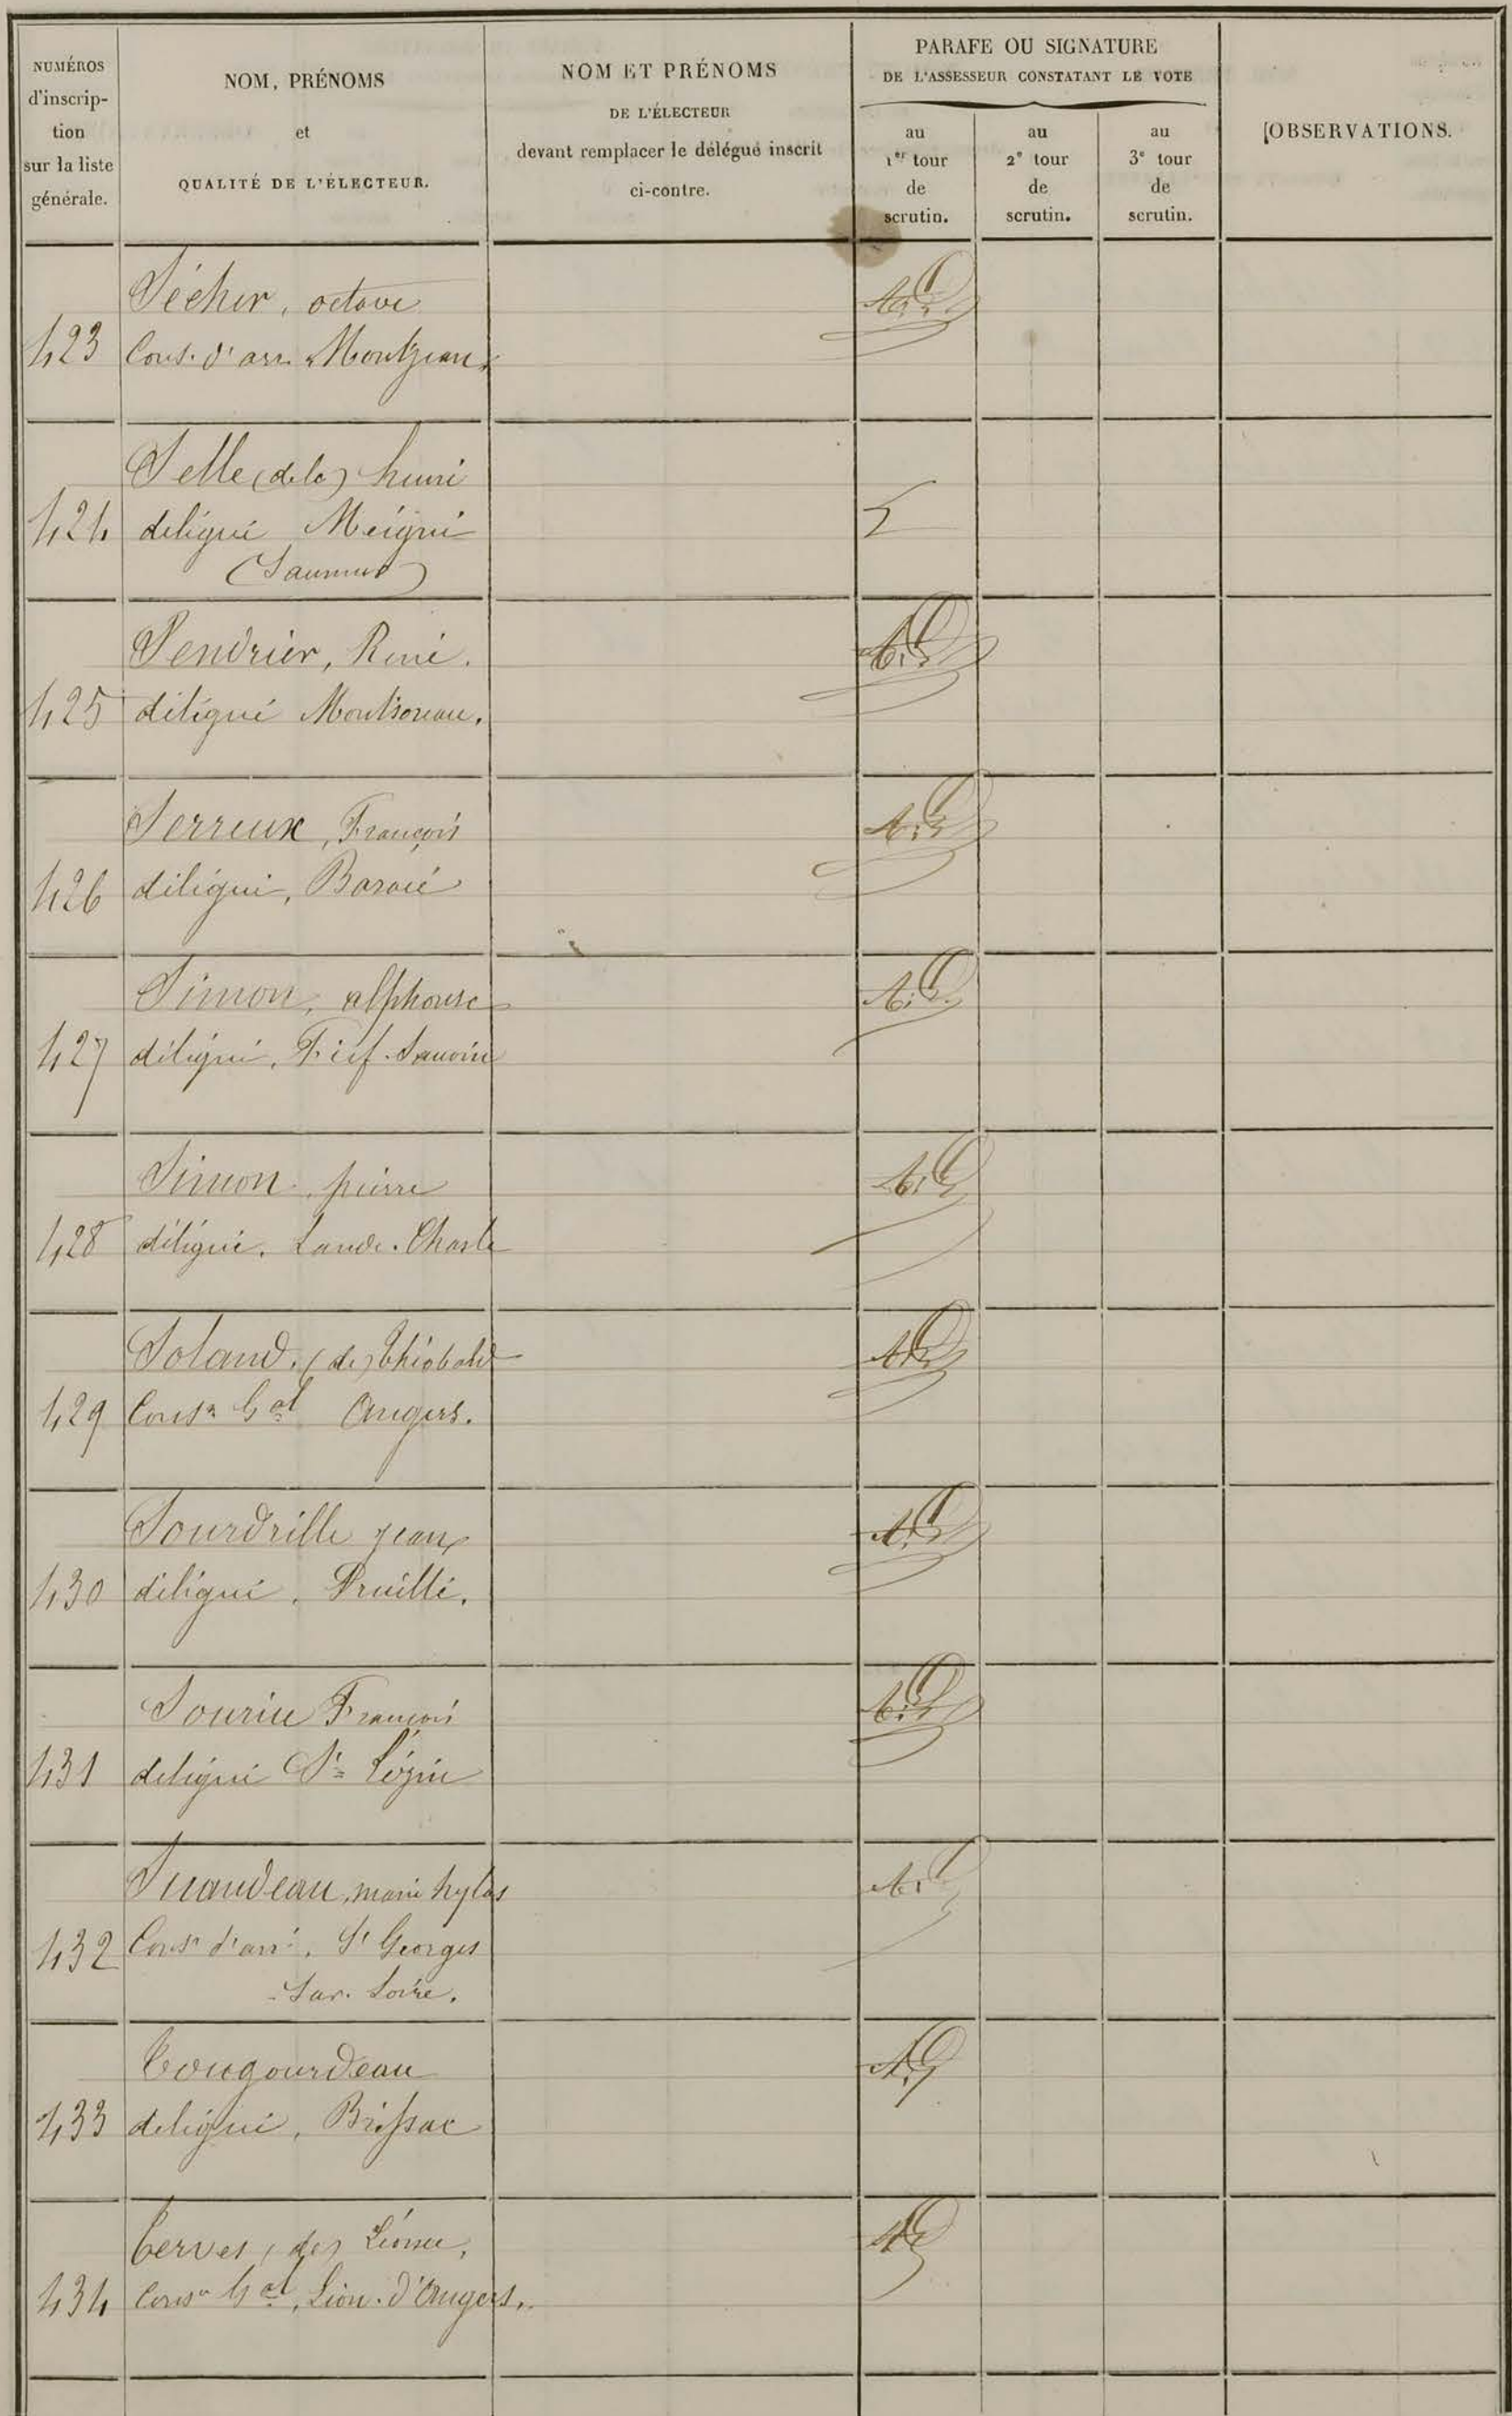 NUMÉROS
d'inscrip-
tion
sur la liste
générale.
NOM, PRÉNOMS
et
QUALITÉ DE L'ÉLECTEUR.
NOM ET PRÉNOMS
DE L'ÉLECTEUR
devant remplacer le délégué inscrit
ci-contre.
PARAFE OU SIGNATURE
DE L'ASSESSEUR CONSTATANT LE VOTE
au
1er tour
de
scrutin.
au
2e tour
de
scrutin.
au
3e tour
de
scrutin.
OBSERVATIONS.
Sécher, octave
423 Cons. d'arr. Montjean
Selle (de la) henri
424 délégué Meigné
(Saumur)
Sendrier, René.
425 délégué Montsoreau.
Serreux, François
426 délégué, Baracé
Simon, alphonse
427 délégué, Fief. Sauvin
Simon, pierre
428 délégué. Lande. Chasle
Soland, (de) Théobald
429 Consr Gal Angers.
Sourdrille jean
430 délégué, Pruillé.
Sourice François
431 délégué St Lézin
Suaudeau, marie hylas
432 Consr d'arrt. St Georges
Sur. Loire.
Tougourdeau
433 délégué, Brissac
Terves, (de) Léonce,
434 Consr Gal, Lion. d'Angers.